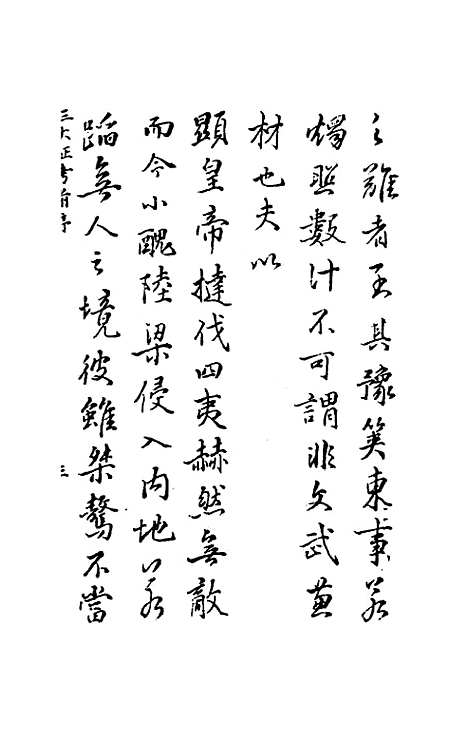 之難者至其豫筭東事若
燭照數計不可謂非文武蒹
材也夫以
顯皇帝撻伐四夷赫然無敵
而今小醜陸梁侵入内地若
蹈無人之境彼雖桀驁不當
三大正考首序
三